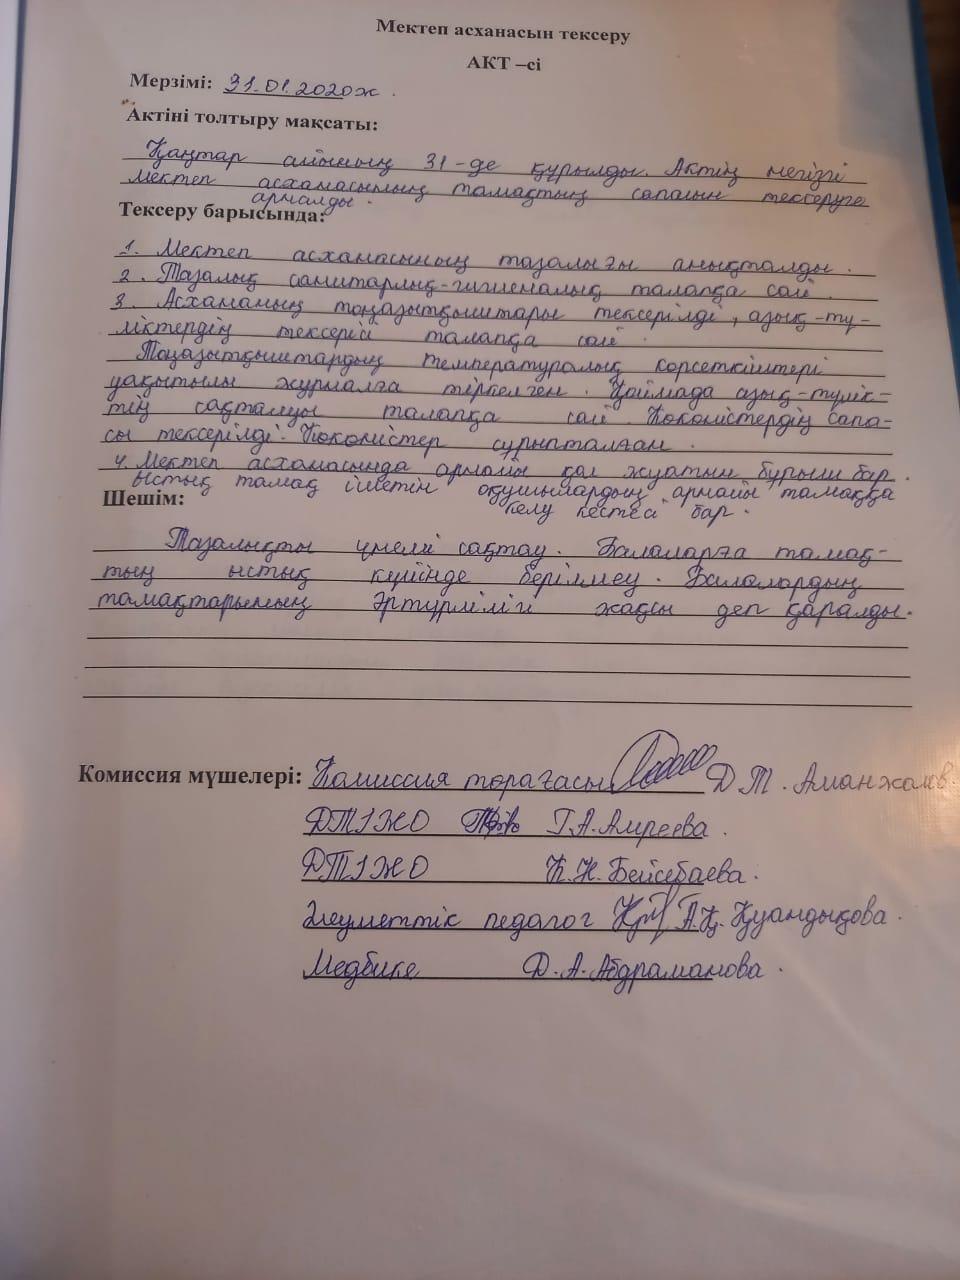 Мектеп асханасын тексеру
АКТ –сі
Мерзімі: 31.01.2020ж.
Актіні толтыру мақсаты:
Қаңтар айының 31-де құрылды. Актің негізгі
мектеп асханасының тамақтың сапасын тексеруге
арналды.
Тексеру барысында:
1. Мектеп асханасының тазалығы анықталды.
2. Тазалық санитарлық-гигиеналық талапқа сай.
3. Асхананың тоңазытқыштары тексерілді, азық-тү-
ліктердің тексерісі талапқа сай.
Тоңазытқыштардың температуралық көрсеткіштері
уақытылы журналға тіркелген. Қоймада азық-түлік-
тің сақталуы талапқа сай. Көкөністердің сапа-
сы тексерілді. Көкөністер сұрыпталған.
4. Мектеп асханасында арнайы қол жуатын бұрыш бар.
Ыстық тамақ ішетін оқушылардың арнайы тамаққа
келу кестесі бар.
Шешім:
Тазалықты үнемі сақтау. Балаларға тамақ-
тың ыстық күйінде берілмеу. Балалардың
тамақтарының әртүрлілігі жақсы деп қаралды.
Комиссия мүшелері: Комиссия төрағасы Д.Т. Аманжолов
ДТІЖО Г.А.Амреева.
ДТІЖО К.Н.Бейсебаева.
Әлеуметтік педагог А.Қ.Қуандықова.
Медбике Д.А.Абдраманова.